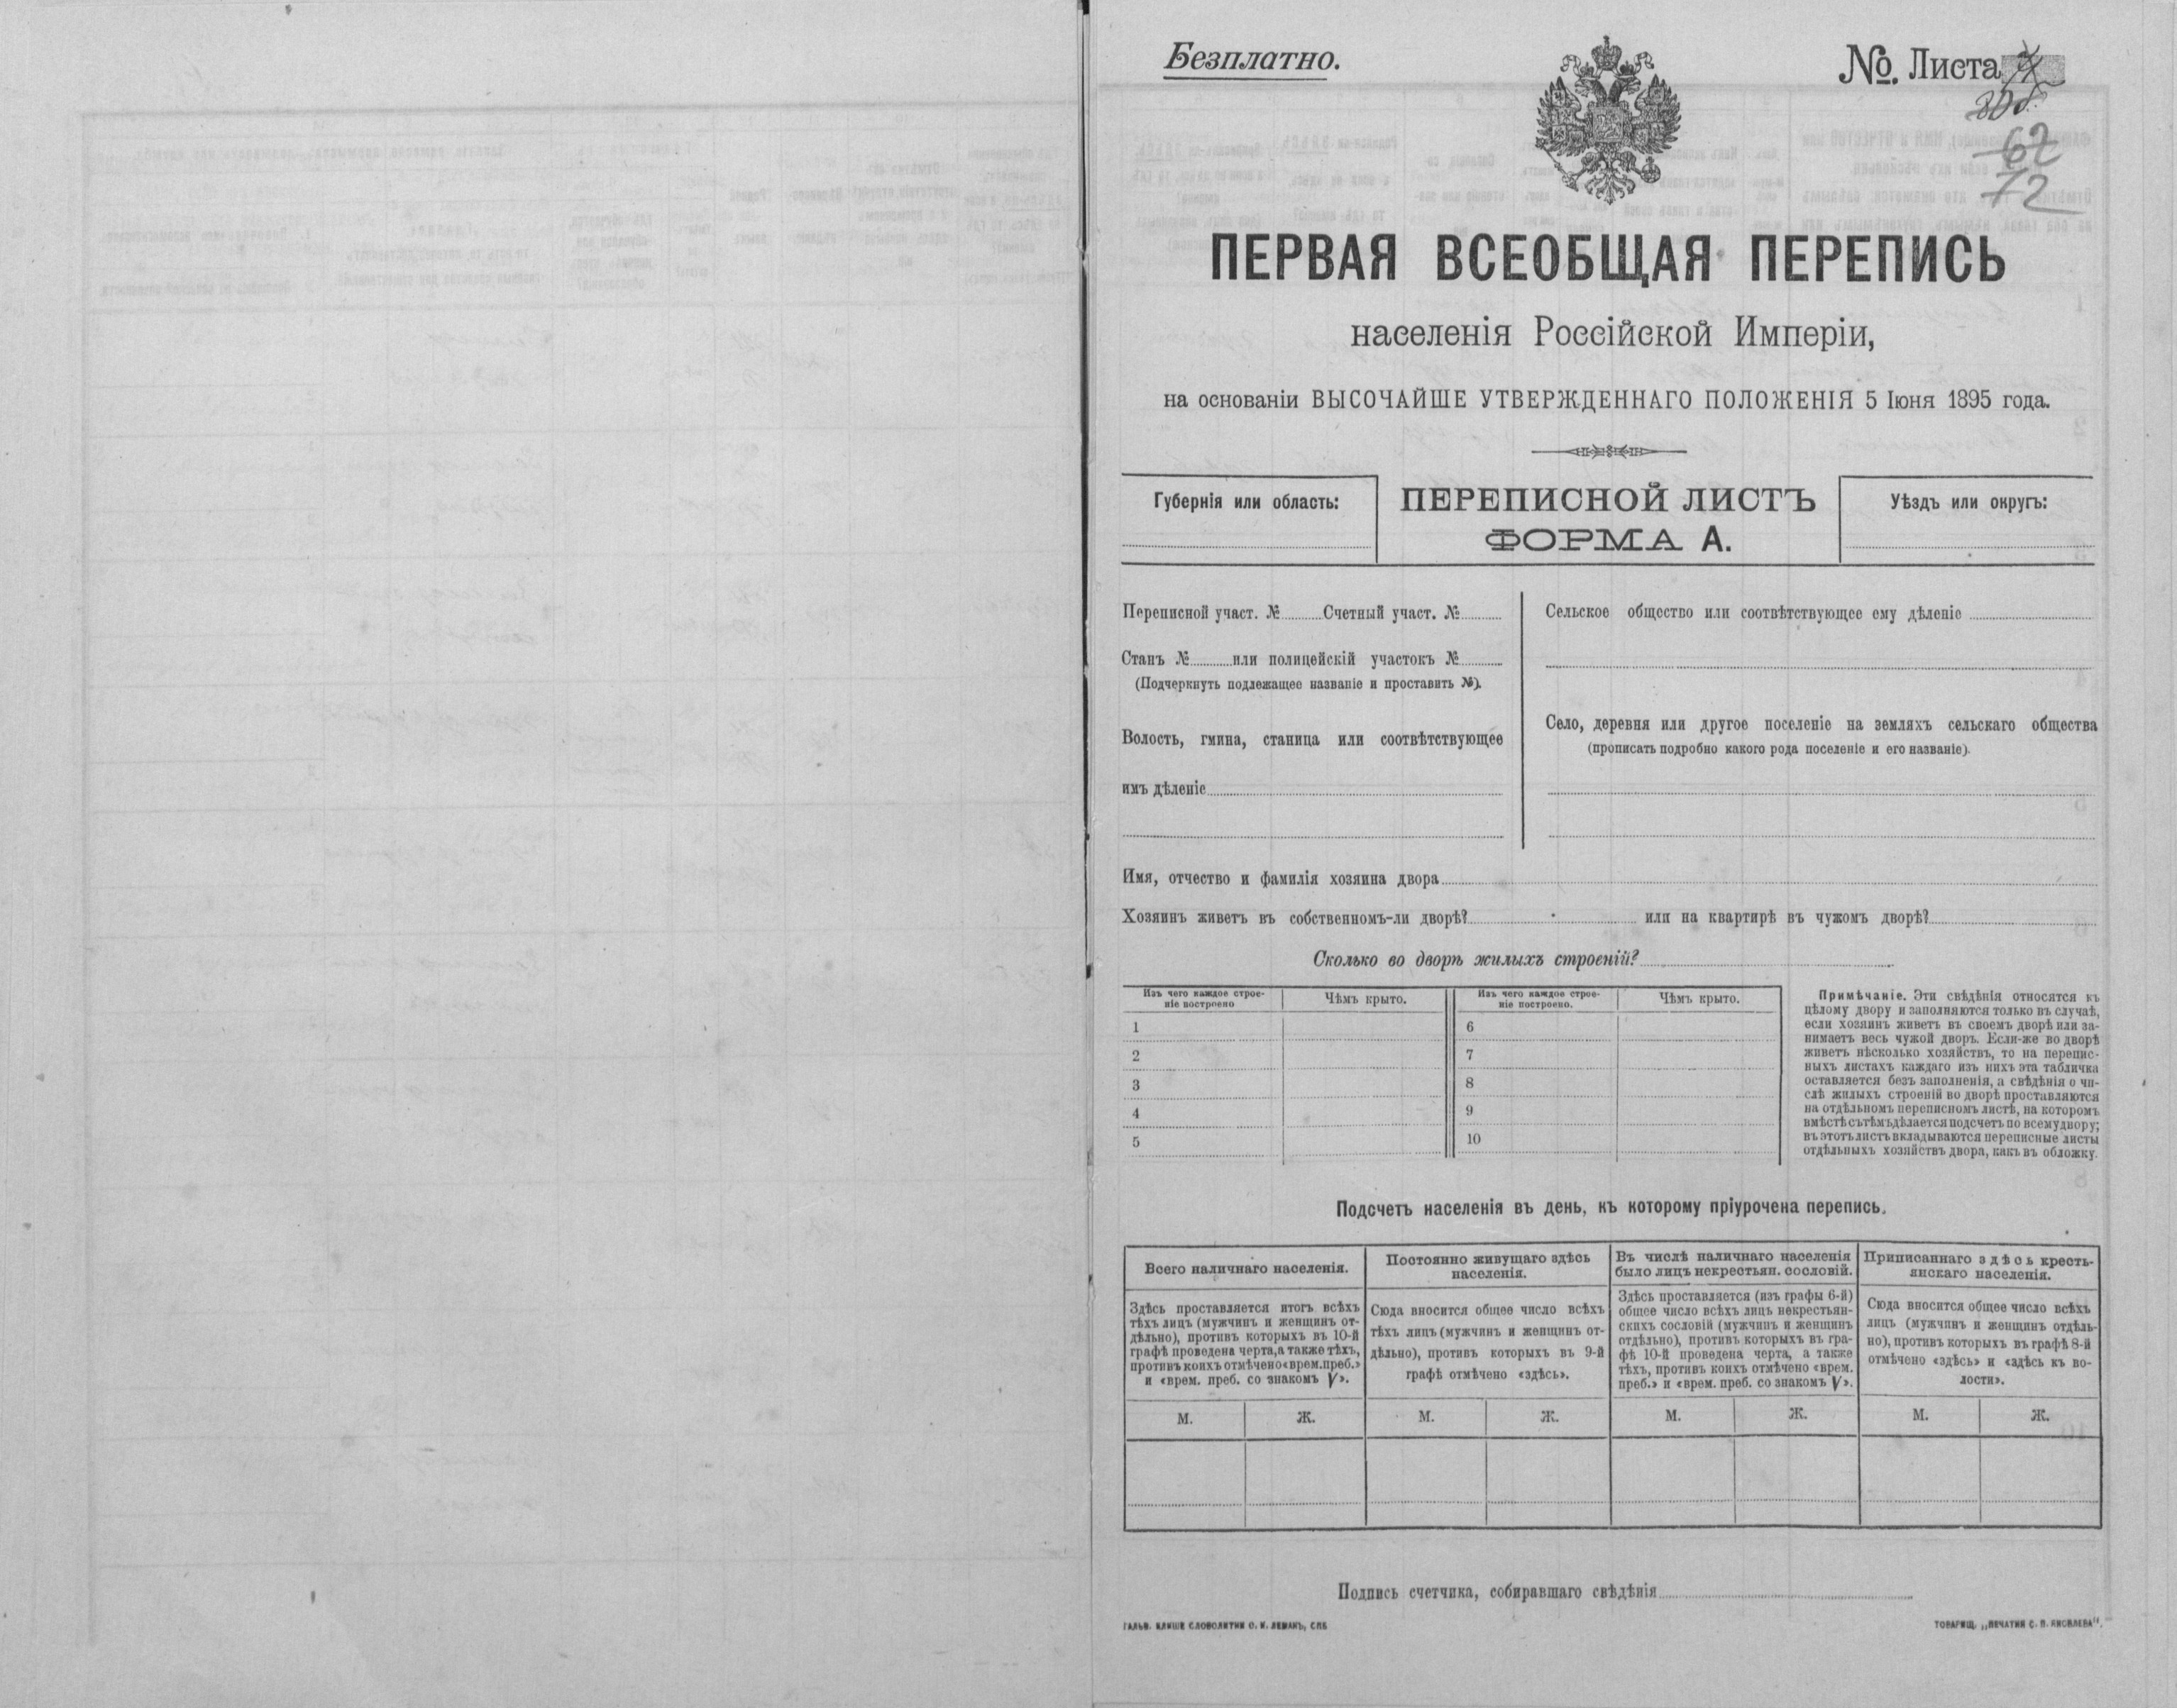 Безплатно.
№. Листа
30об.
62
72
ПЕРВАЯ ВСЕОБЩАЯ ПЕРЕПИСЬ
населенія Россійской Имперіи,
на основаніи ВЫСОЧАЙШЕ УТВЕРЖДЕННАГО ПОЛОЖЕНІЯ 5 Іюня 1895 года.
Губернія или область:
ПЕРЕПИСНОЙ ЛИСТЪ
ФОРМА А.
Уѣздъ или округъ:
Переписной участ. № Счетный участ. №
Станъ № или полицейскій участокъ №
(Подчеркнуть подлежащее названіе и проставить №).
Волость, гмина, станица или соотвѣтствующее
имъ дѣленіе
Сельское общество или соотвѣтствующее ему дѣленіе
Село, деревня или другое поселеніе на земляхъ сельскаго общества
(прописать подробно какого рода поселеніе и его названіе).
Имя, отчество и фамилія хозяина двора
Хозяинъ живетъ въ собственномъ-ли дворѣ? или на квартирѣ въ чужомъ дворѣ?
Сколько во дворѣ жилыхъ строеній?
Изъ чего каждое строе-
ніе построено
Чѣмъ крыто.
Изъ чего каждое строе-
ніе построено.
Чѣмъ крыто.
1
2
3
4
5
6
7
8
9
10
Примѣчаніе. Эти свѣдѣнія относятся къ
цѣлому двору и заполняются только въ случаѣ,
если хозяинъ живетъ въ своемъ дворѣ или за-
нимаетъ весь чужой дворъ. Если-же во дворѣ
живетъ нѣсколько хозяйствъ, то на перепис-
ныхъ листахъ каждаго изъ нихъ эта табличка
оставляется безъ заполненія, а свѣдѣнія о чи-
слѣ жилыхъ строеній во дворѣ проставляются
на отдѣльномъ переписномъ листѣ, на которомъ
вмѣстѣ съ тѣмъ дѣлается подсчетъ по всему двору;
въ этотъ листъ вкладываются переписные листы
отдѣльныхъ хозяйствъ двора, какъ въ обложку.
Подсчетъ населенія въ день, къ которому пріурочена перепись.
Всего наличнаго населенія.
Постоянно живущаго здѣсь
населенія.
Въ числѣ наличнаго населенія
было лицъ некрестьян. сословій.
Приписаннаго здѣсь кресть-
янскаго населенія.
Здѣсь проставляется итогъ всѣхъ
тѣхъ лицъ (мужчинъ и женщинъ от-
дѣльно), противъ которыхъ въ 10-й
графѣ проведена черта, а также тѣхъ,
противъ коихъ отмѣчено «врем. преб.»
и «врем. преб. со знакомъ V».
Сюда вносится общее число всѣхъ
тѣхъ лицъ (мужчинъ и женщинъ от-
дѣльно), противъ которыхъ въ 9-й
графѣ отмѣчено «здѣсь».
Здѣсь проставляется (изъ графы 6-й)
общее число всѣхъ лицъ некрестьян-
скихъ сословій (мужчинъ и женщинъ
отдѣльно), противъ которыхъ въ гра-
фѣ 10-й проведена черта, а также
тѣхъ, противъ коихъ отмѣчено «врем.
преб.» и «врем. преб. со знакомъ V».
Сюда вносится общее число всѣхъ
лицъ (мужчинъ и женщинъ отдѣль-
но), противъ которыхъ въ графѣ 8-й
отмѣчено «здѣсь» и «здѣсь къ во-
лости».
М. Ж. М. Ж. М. Ж. М. Ж.
Подпись счетчика, собиравшаго свѣдѣнія
ГАЛЬВ. КЛИШЕ СЛОВОЛИТНИ О. И. ЛЕМАНЪ, СПБ
ТОВАРИЩ. „ПЕЧАТНЯ С. П. ЯКОВЛЕВА“.